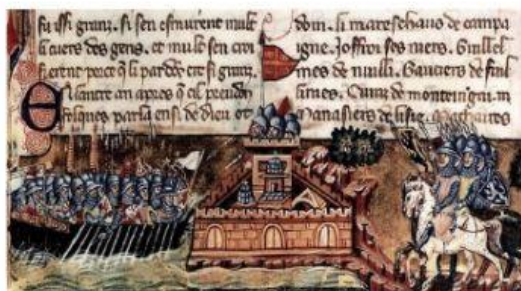 fu issi granz. si sen esmurent mult
li cuers des gens. et mult sen croi
sierent porce q̃ li pardõs ere si granz.
En lautre an apres q̃ cil preudõ
folques parla ensi de dieu ot
doin. li mareschaus de campa
igne. Joffroi ses niers. Guillel
mes de nuilli. Gautiers de fuil
lines. de monteigni.
Manasiers de lisle. Machaires